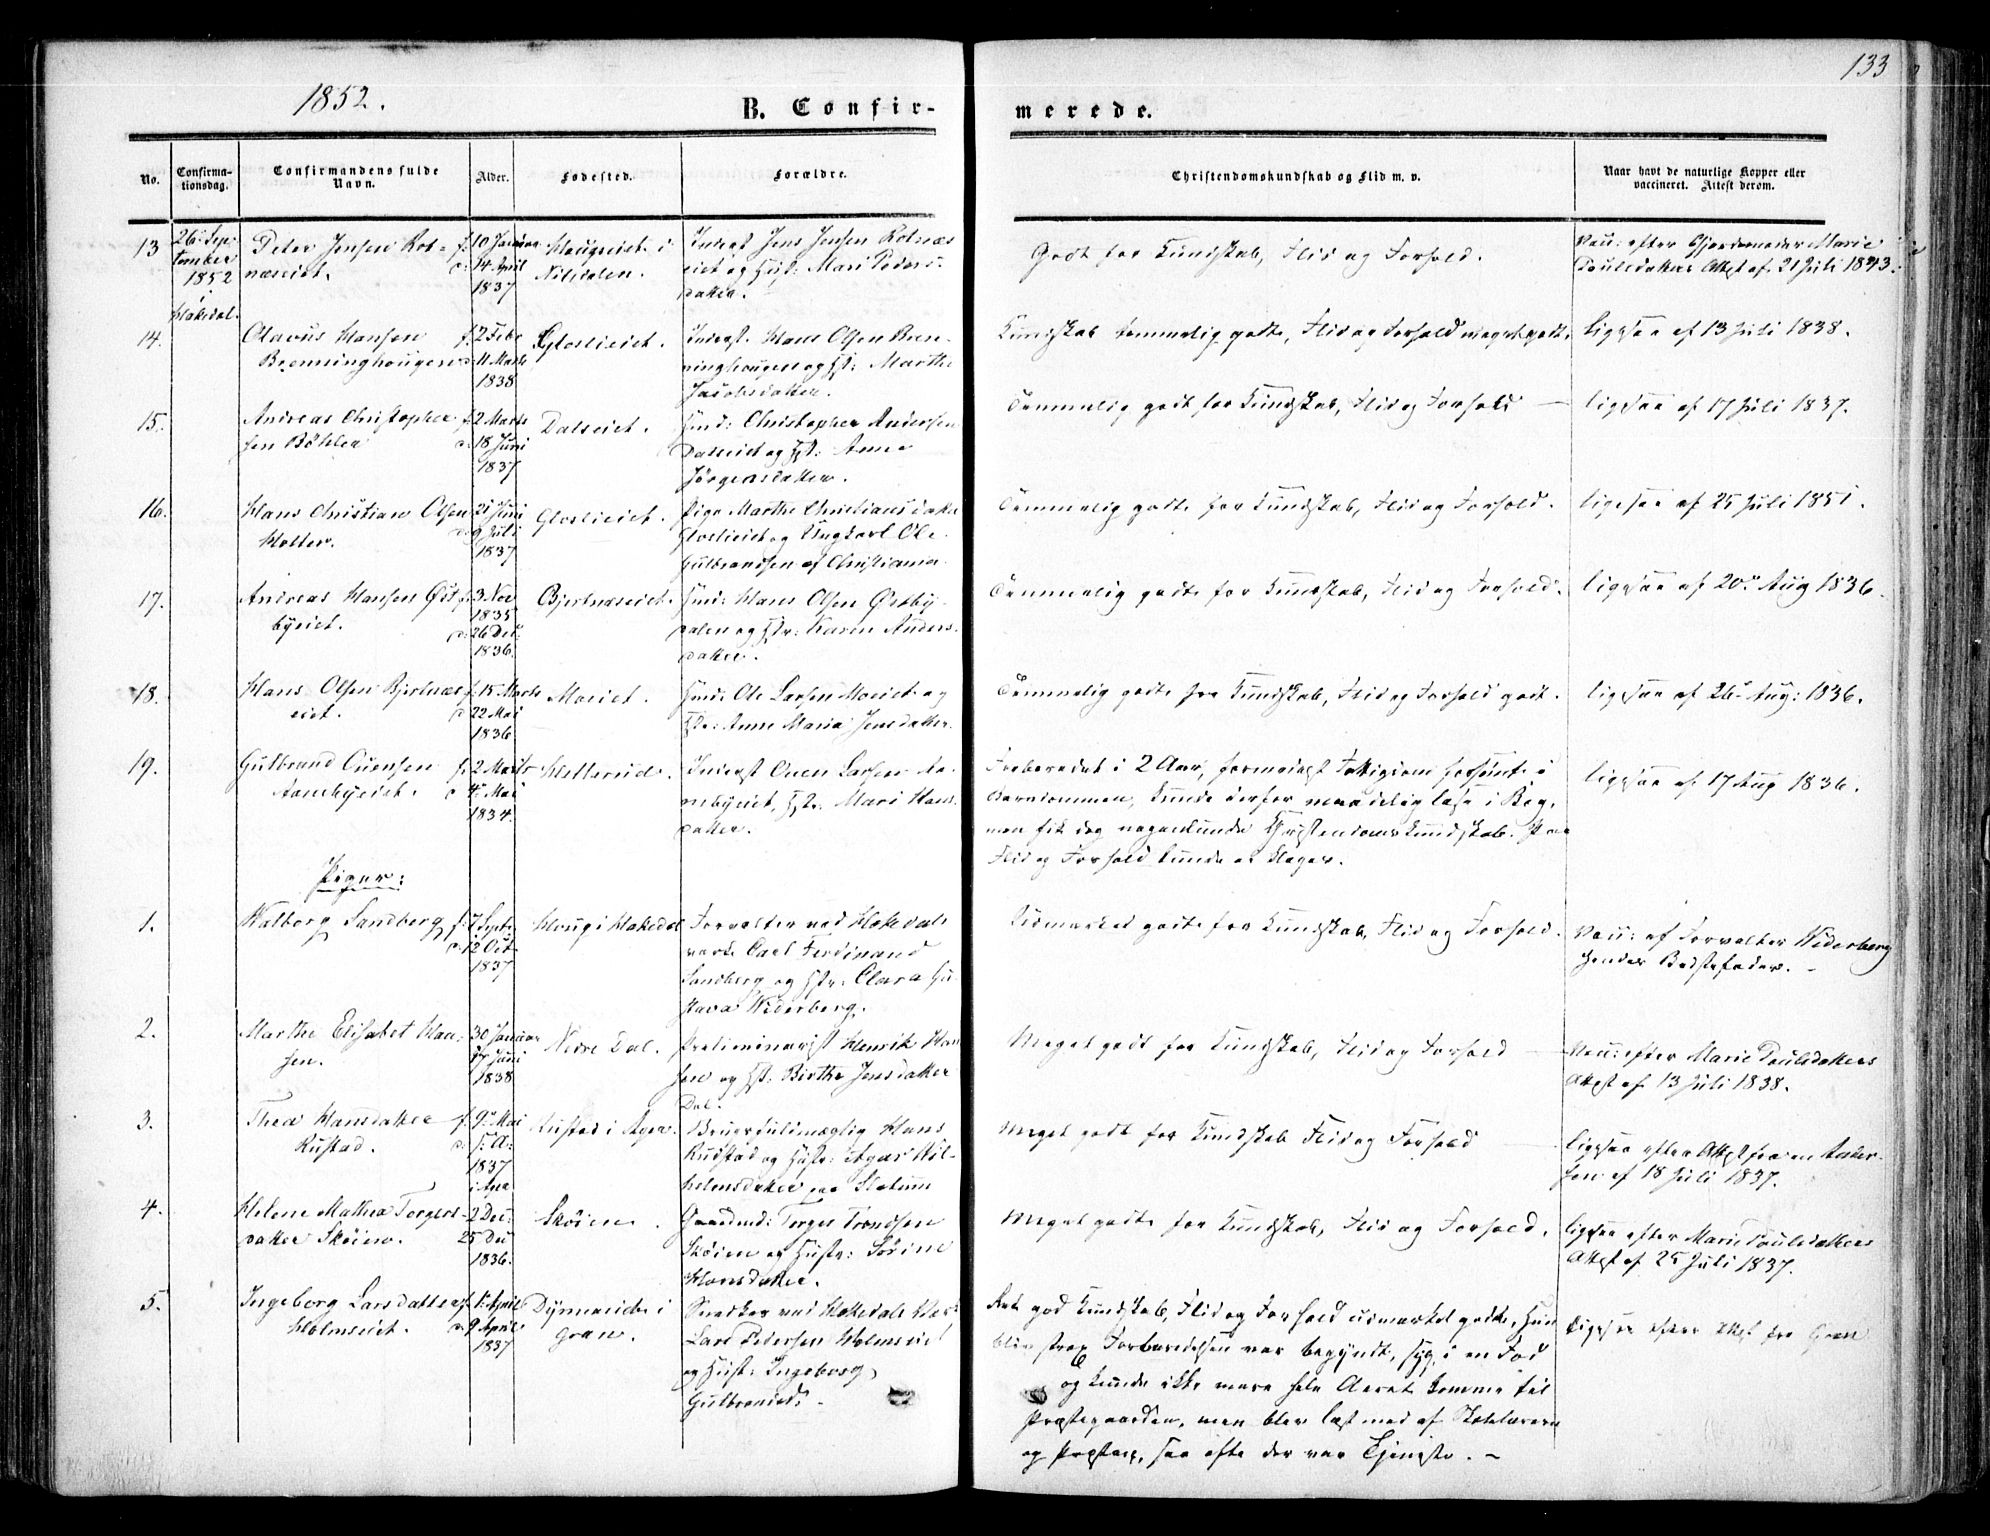 1852.
B. Confir-
merede.
133
No.
Confirma-
tionsdag.
Confirmandens fulde
Navn.
Alder.
Fødested.
Forældre.
Christendomskundskab og Flid m. v.
Naar havt de naturlige Kopper eller
vaccineret. Attest derom.
13
26 Sep-
tember
1852
i
Hakedal.
Peter Jensen Rot-
næseiet.
f. 10 Januar
d: 14 April
1837
Haugeiet i
Nitidalen.
Inderst Jens Jensen Rotnæs
eiet og Hust: Mari Peders-
datter.
Godt for Kundskab, Flid og Forhold.
Vac: efter Gjordemoder Marie
Poulsdatters Attest af 21 Juli 1843.
14.
Olavus Hansen
Brenninghougen
f. 2 Febr
d. 11 Marts
1838
Gloslieiet.
Inderst Hans Olsen Bren-
ninghougen og Hst: Marthe
Jacobsdatter.
Kundskab temmelig godt, Flid og Forhold meget godt.
ligesaa af 13 Juli 1838.
15.
Andreas Christopher
sen Böhler
f. 2 Marts
d: 18 Juni
1837
Dalseiet.
Hmd: Christopher Andersen
Dalseiet og Hst: Anne
Jörgensdatter.
Temmelig godt for Kundskab, Flid og Forhold
ligesaa af 17 Juli 1837.
16.
Hans Christian Olsen
Holter.
21 Juni
d. 9 Juli
1837
Gloslieiet.
Pige Marthe Christiansdatter
Gloslieiet og Ungkarl Ole
Gulbrandsen af Christiania
Temmelig godt for Kundskab, Flid og Forhold.
ligesaa af 25 Juli 1851.
17.
Andreas Hansen Øst-
byeiet.
f. 3 Nov
1835
d: 26 Dec
1836.
Bjertnæseiet.
Hmd: Hans Olsen Østby-
dalen og Hstr: Karen Anders-
datter.
Temmelig godt for Kundskab, Flid og Forhold.
ligesaa af 20 Aug 1836.
18.
Hans Olsen Bjertnæs
eiet.
f. 15 Marts
d 22 Mai
1836
Moeiet.
Hmd: Ole Larsen Moeiet og
Hstr: Anne Maria Jensdatter.
Temmelig godt for Kundskab, Flid og Forhold godt.
ligesaa af 26 Aug: 1836.
19.
Gulbrand Ouensen
Aaenbyeiet.
f. 2 Marts
d 4 Mai
1834.
Hellerud.
Inderst Ouen Larsen Aa-
enbyeiet, Hstr. Mari Hans
datter.
Forberedet i 2 Aar, formedelst Fattigdom forsömt i
Barndommen, kunde derfor maadelig læse i Bog,
men fik dog nogenlunde Christendomskundskab. Paa
Flid og Forhold kunde ei klages.
ligesaa af 17 Aug 1836.
Piger:
1.
Walborg Sandberg
f. 7 Sept.
d. 12 Oct.
1837
Houg i Hakedal
Forvalter ved Hakedals
værk Carl Ferdinand
Sandberg og Hstr: Clara Gu
stava Widerberg.
Udmærket godt for Kundskab, Flid og Forhold.
Vac: af Forvalter Widerberg
hendes Bedstefader. -
2.
Marthe Elisabet Han-
sen.
30 Januar
17 Juni
1838
Nedre Dal.
Preliminarist Henrik Han
sen og Hst: Birthe Jensdatter
Dal.
Meget godt for Kundskab, Flid og Forhold
Vac: efter Marie Poulsdatters
Attest af 13 Juli 1838.
3.
Thea Hansdatter
Rustad.
f. 9 Mai
d. s. A:
1837
Rustad i Ager.
Hans
Rudstad og Hustr: Wil-
helmsdatter paa Slatum
Meget godt for Kundskab Flid og Forhold
ligesaa efter Attest fra en Ander-
sen af 18 Juli 1837.
4.
Helene Mathea Torgers-
datter Skøien.
2 Dec:
25 Dec
1836.
Skøien.
Gaardmd: Torger Trondsen
Skøien og Hustr: Sørine
Hansdatter.
Meget godt for Kundskab, Flid og Forhold.
ligesaa efter Marie Poulsdatters
Attest af 25 Juli 1837.
5.
Ingeborg Larsdatter
Holmseiet.
f. 1 April
d. 9 April
1837
Dynnaeiet i
Gran.
Snedker ved Hakedals Værk
Lars Pedersen Holmseiet
og Hust: Ingeborg
Gulbrandsd. -
Ret god Kundskab, Flid og Forhold udmærket godt, hun
blev strax Forberedelsen var begyndt, syg i en Fod
og kunde ikke mere hele Aaret komme til
Præstegaarden, men blev læst med af Skolelæreren
og Præsten, saa ofte der var Tjeneste. -
Ligesaa efter Attest fra Gran